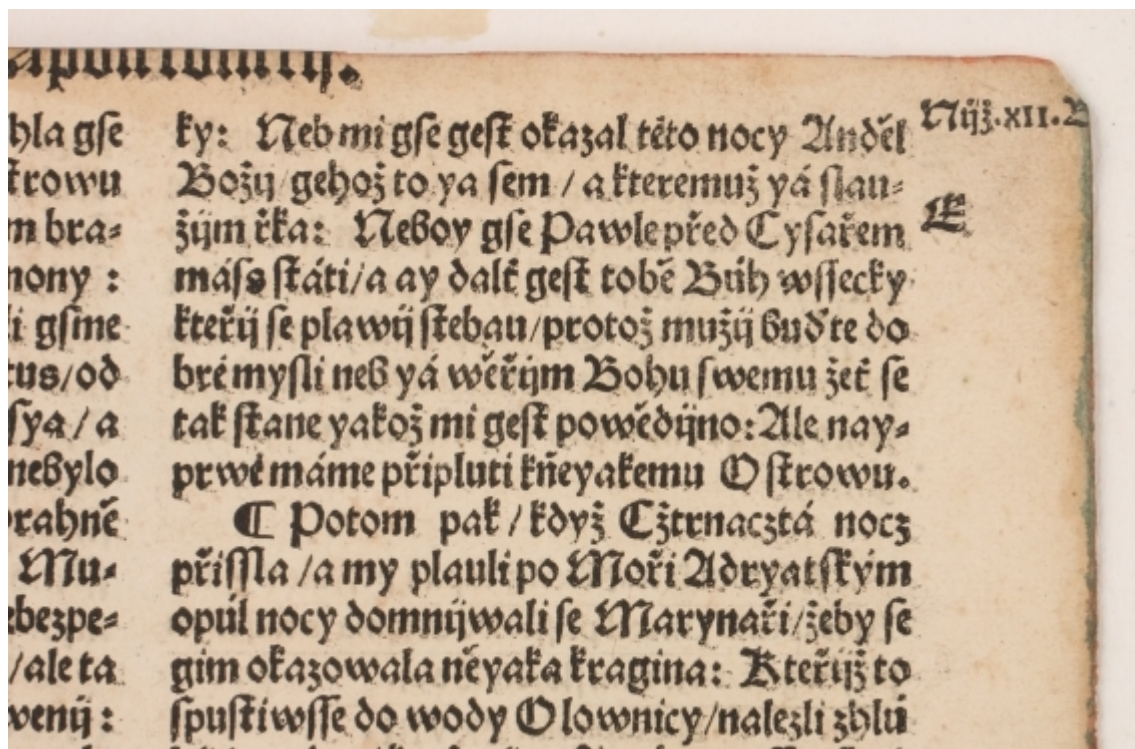 hla gſe
ſtrowu
m bra⸗
mony :
li gſme
tus/od
ſya/a
nebylo
brahně
Mu⸗
ebezpe⸗
/ale ta
wenij :
ky: Neb mi gſe geſt okazal této nocy Anděl
Božij gehož to ya ſem / a kteremuž yá ſlau⸗
žijm řka: Neboy gſe Pawle před Cyſařem
máſs ſtáti/a ay dalť geſt tobě Bůh wſſecky
kteřij ſe plawij ſtebau/protož mužij buďte do
bré myſli neb yá wěřijm Bohu ſwemu žeť ſe
tak ſtane yakož mi geſt powědijno: Ale nay⸗
prwé máme připluti kňeyakemu Oſtrowu.
¶ Potom pak / když Cžtrnacztá nocz
přiſſla /a my plauli po Moři Adryatſkým
opůl nocy domnijwali ſe Marynaři/žeby ſe
gim okazowala něyaka kragina: Kteřijž to
ſpuſtiwſſe do wody Olownicy/nalezli zhlú
Nijž.XII.B
E